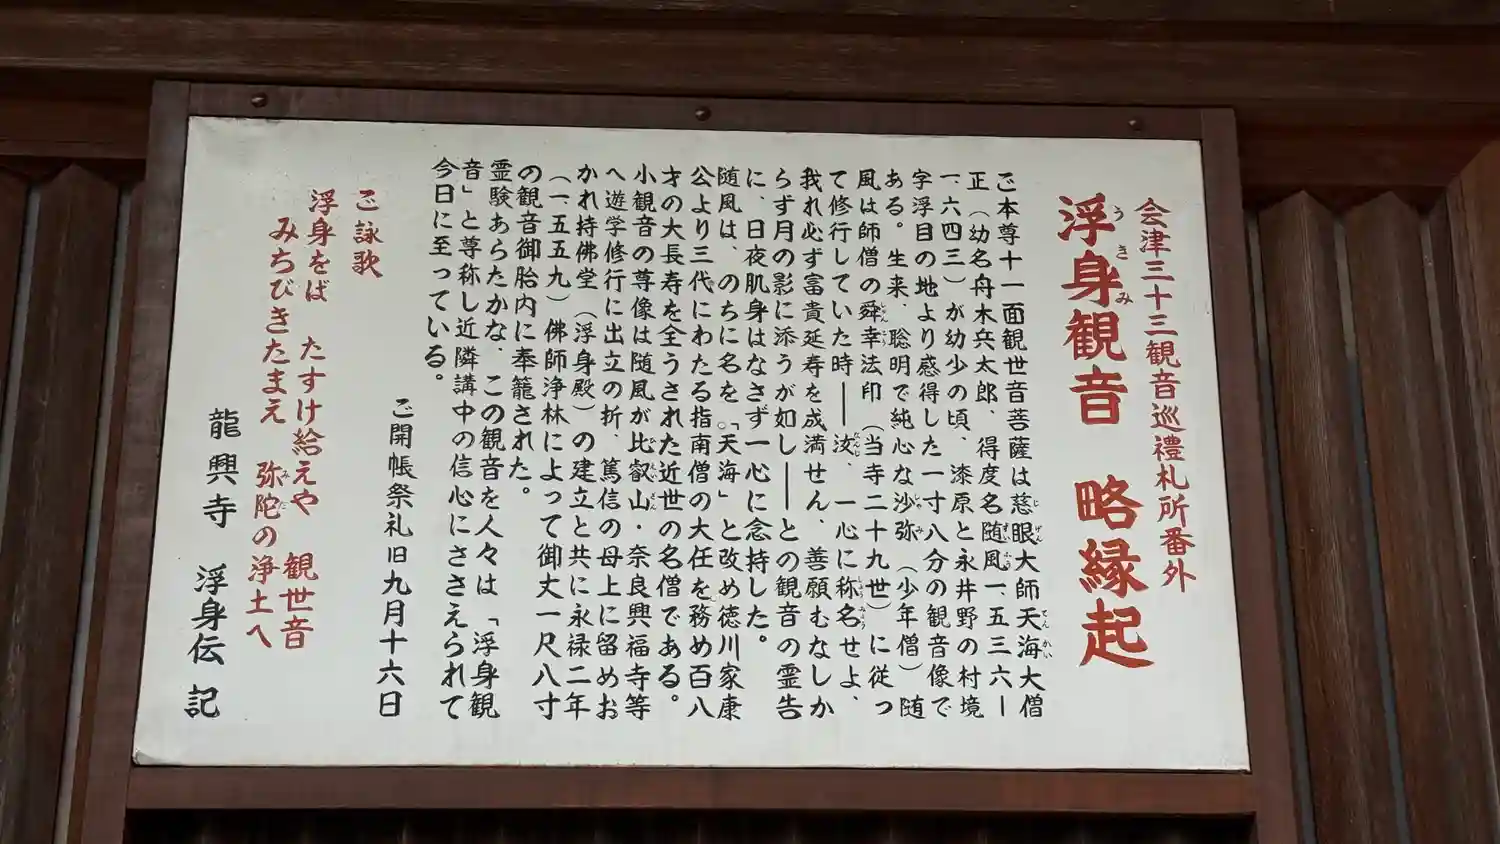 会津三十三観音巡禮札所番外
浮身観音 略縁起
ご本尊十一面観世音菩薩は慈眼大師天海大僧
正（幼名舟木兵太郎、得度名随風一、五三六ー
一、六四三）が幼少の頃、漆原と永井野の村境
字浮目の地より感得した一寸八分の観音像で
ある。生来、聡明で純心な沙弥（少年僧）随
風は師僧の舜幸法印（当寺二十九世）に従っ
て修行していた時――汝、一心に称名せよ、
我れ必ず富貴延寿を成満せん、善願むなしか
らず月の影に添うが如し――との観音の霊告
に、日夜肌身はなさず一心に念持した。
随風は、のちに名を「天海」と改め徳川家康
公より三代にわたる指南僧の大任を務め百八
才の大長寿を全うされた近世の名僧である。
小観音の尊像は随風が比叡山・奈良興福寺等
へ遊学修行に出立の折、篤信の母上に留めお
かれ持佛堂（浮身殿）の建立と共に永禄二年
（一、五五九）佛師浄林によって御丈一尺八寸
の観音御胎内に奉籠された。
霊験あらたかな、この観音を人々は、「浮身観
音」と尊称し近隣講中の信心にささえられて
今日に至っている。
ご開帳祭礼旧九月十六日
ご詠歌
浮身をば たすけ給えや 観世音
みちびきたまえ 弥陀の浄土へ
龍興寺 浮身伝記